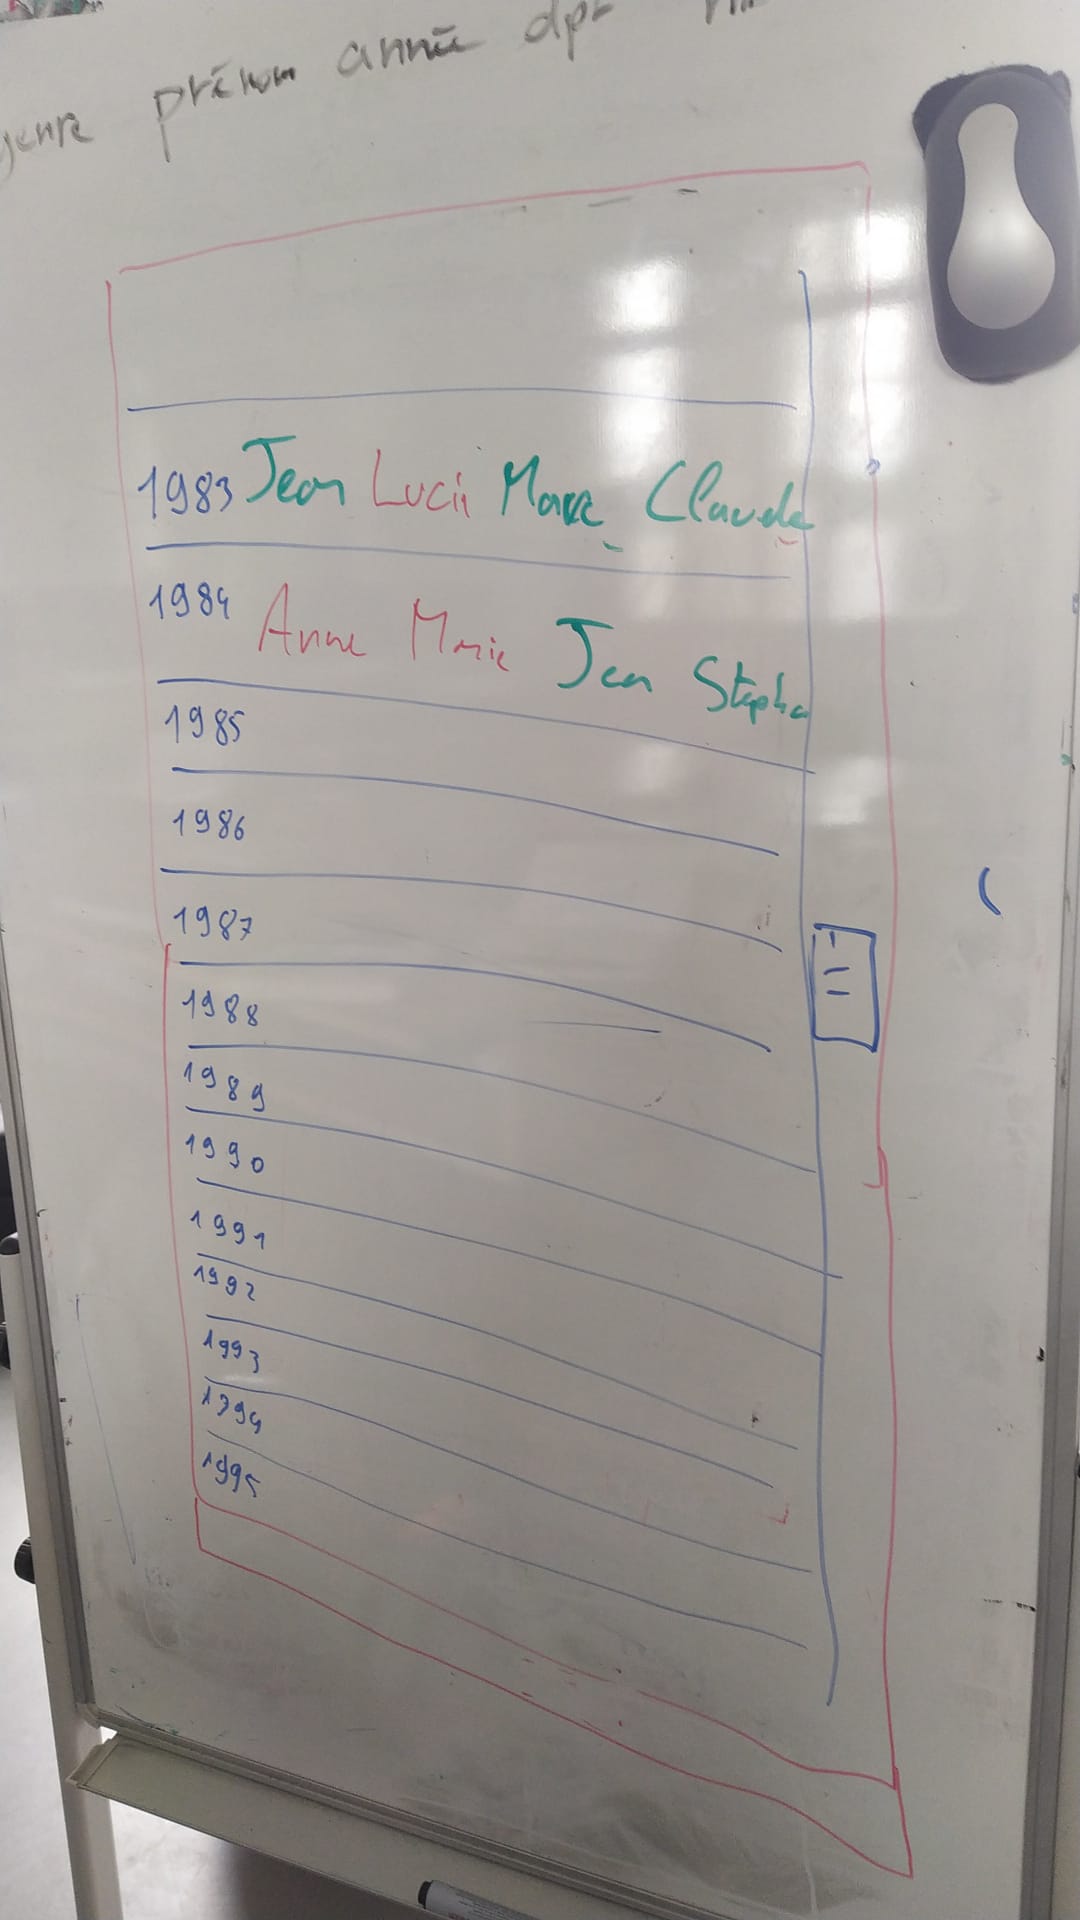 genre prénom année dpt
1983 Jean Lucie Marc Claude
1984 Anne Marie Jean Stepha
1985
1986
1987
1988
1989
1990
1991
1992
1993
1994
1995